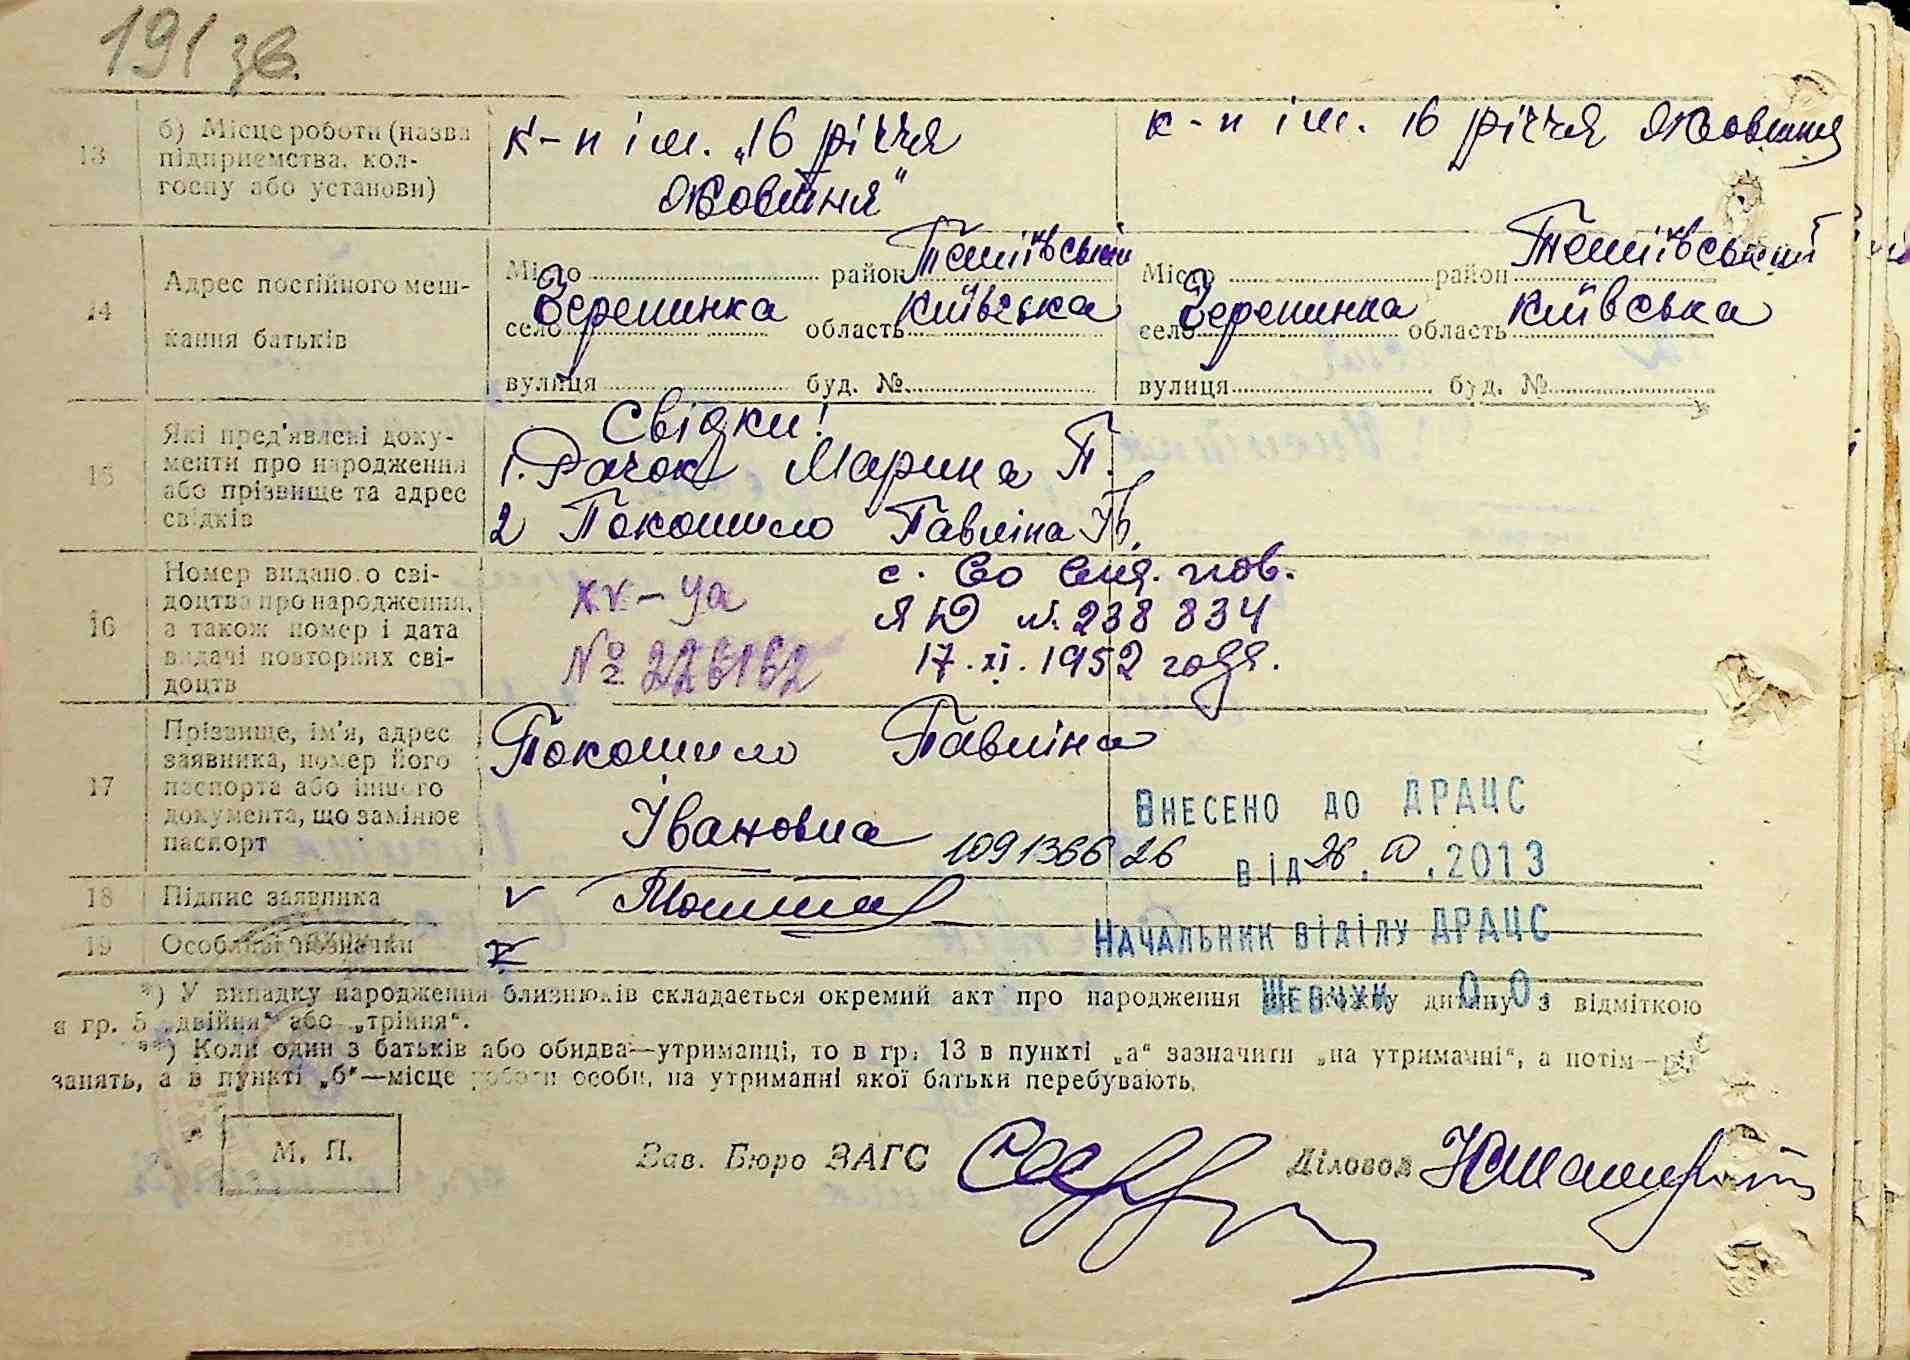 191 зв.
13
б) Місце роботи (назва
підприємства, кол-
госпу або установи)
к-п ім. „16 річчя
Жовтня"
к-п ім. 16 річчя Жовтня
14
Адрес постійного меш-
кання батьків
Місто район Тетіївський
село Черепинка область Київська
вулиця буд. №
Місто район Тетіївський
село Черепинка область Київська
вулиця буд. №
15
Які пред'явлені доку-
менти про народження
або прізвище та адрес
свідків
Свідки!
1. Рачок Марина П.
2 Покотило Павліна Ів.
16
Номер видано о сві-
доцтва про народження,
а також номер і дата
видачі повторних сві-
доцтв
XV-УА
№ 226162
с. Со пов.
ЯЮ №. 238 834
17. XI. 1952 года.
17
Прізвище, ім'я, адрес
заявника, номер його
паспорта або іншого
документа, що замінює
паспорт
Покотило Павліна
Івановна
109136626
Внесено до ДРАЦС
від 26. IV. 2013
18
Підпис заявника
V
19
Особливі позначки
Начальник відділу ДРАЦС
Шевчук О О
*) У випадку народження близнюків складається окремий акт про народження на кожну дитину з відміткою
в гр. 5 „двійня" або „трійня".
**) Коли один з батьків або обидва—утриманці, то в гр. 13 в пункті „а" зазначити „на утриманні", а потім—рід
занять, а в пункті „б"—місце роботи особи, на утриманні якої батьки перебувають.
М. П.
Зав. Бюро ЗАГС
Діловод